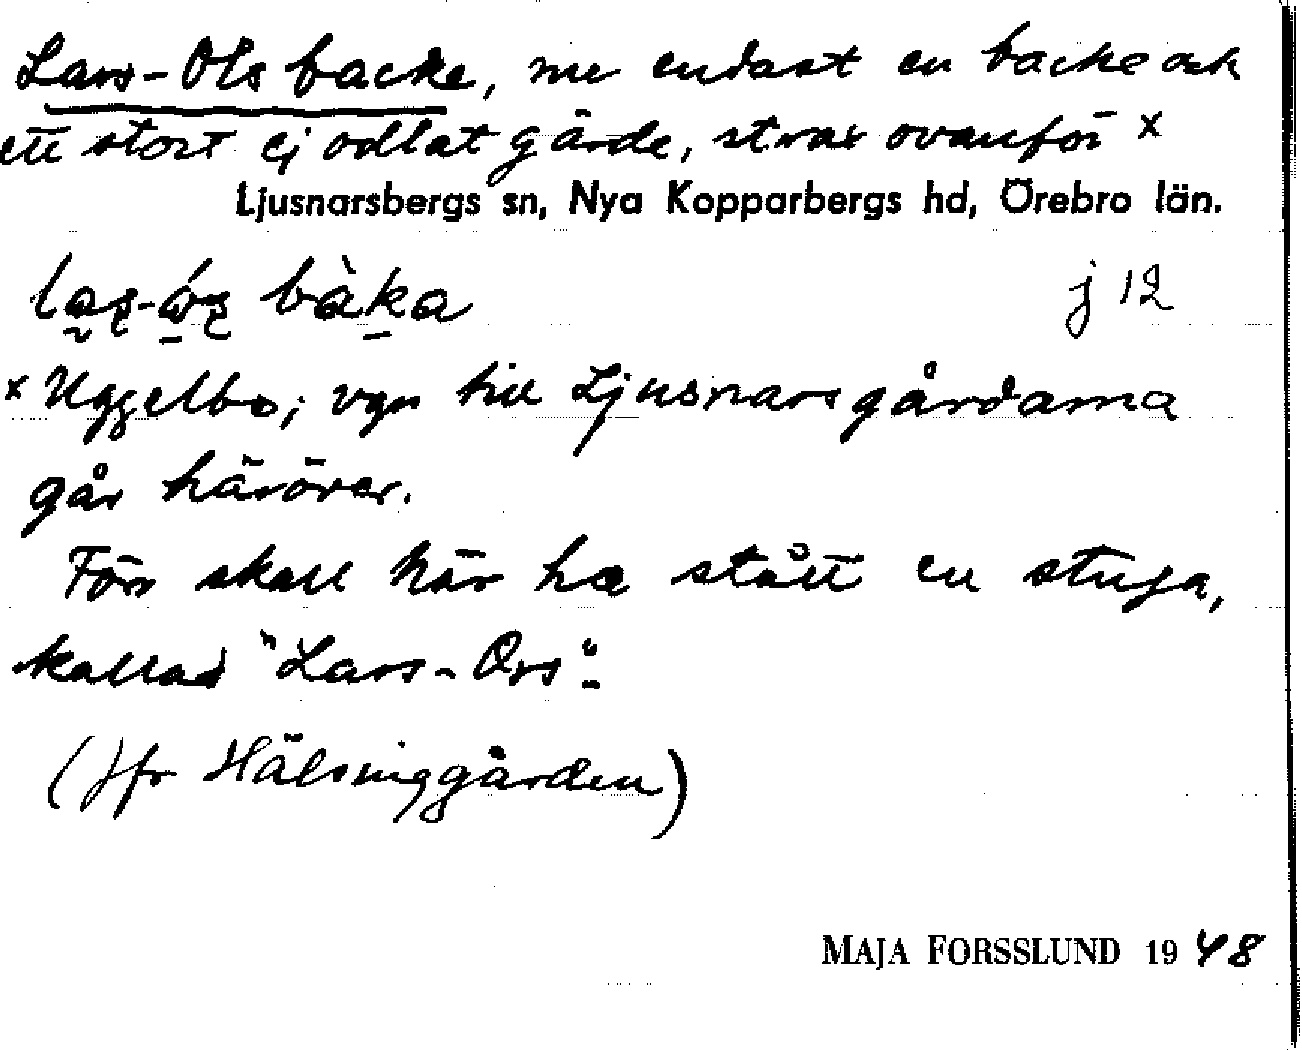 Lars-Ols backe, nu endast en backe och
ett stort ej odlat gärde, strax ovanför x
Ljusnarsbergs sn, Nya Kopparbergs hd, Örebro län.
j 12
x Uggelbo; vgn till Ljusnarsgårdarna
går häröver.
Förr skall här ha stått en stuga,
kallad "Lars-Ors".
(Jfr Hälsinggården)
MAJA FORSSLUND 1948